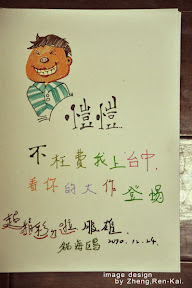 愷愷
不枉費我上台中,
看你的大作登場
超精彩
2010.12.24.
image design
by Zheng,Ren-Kai.